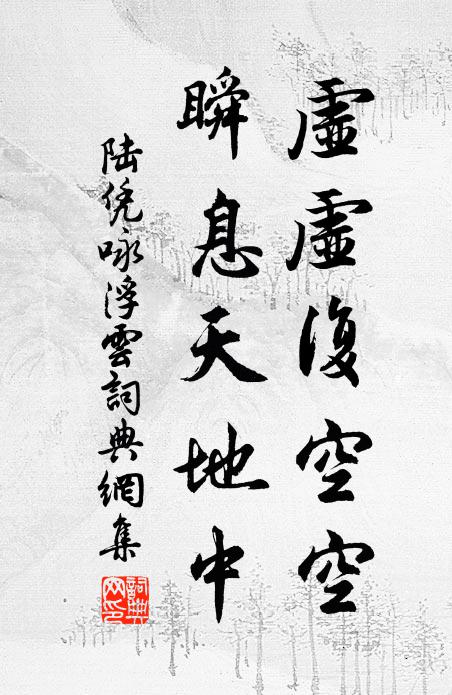 虛虛復空空
瞬息天地中
陆凭咏浮雲詞典網集
詞典